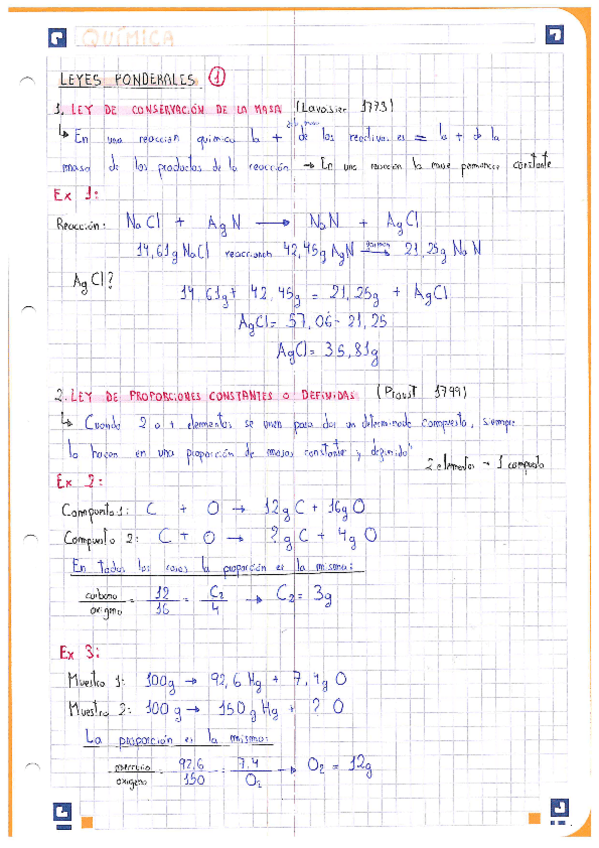 QUÍMICA
LEYES PONDERALES ①
1. LEY DE CONSERVACIÓN DE LA MASA (Lavosier 1773)
↳ En una reacción química la + de los reactivos es = la + de la
masa de los productos de la reacción → En una reacción la masa permanece constante
Ex 1:
Reacción: NaCl + AgN → NaN + AgCl
14,61g NaCl reaccionan 42,45g AgN → 21,25g NaN
AgCl?
14,61g + 42,45g = 21,25g + AgCl
AgCl = 57,06 - 21,25
AgCl = 35,81g
2. LEY DE PROPORCIONES CONSTANTES o DEFINIDAS (Proust 1799)
↳ Cuando 2 o + elementos se unen para dar un determinado compuesto, siempre
lo hacen en una proporción de masas constante y definida"
2 elementos → 1 compuesto
Ex 2:
Compuesto 1: C + O → 12g C + 16g O
Compuesto 2: C + O → ? g C + 4g O
En todos los casos la proporción es la misma:
carbono / oxígeno = 12 / 16 = C₂ / 4 → C₂ = 3g
Ex 3:
Muestra 1: 100g → 92,6 Hg + 7,4g O
Muestra 2: 100g → 150g Hg + ? O
La proporción es la misma:
mercurio / oxígeno = 92,6 / 150 = 7,4 / O₂ → O₂ = 12g